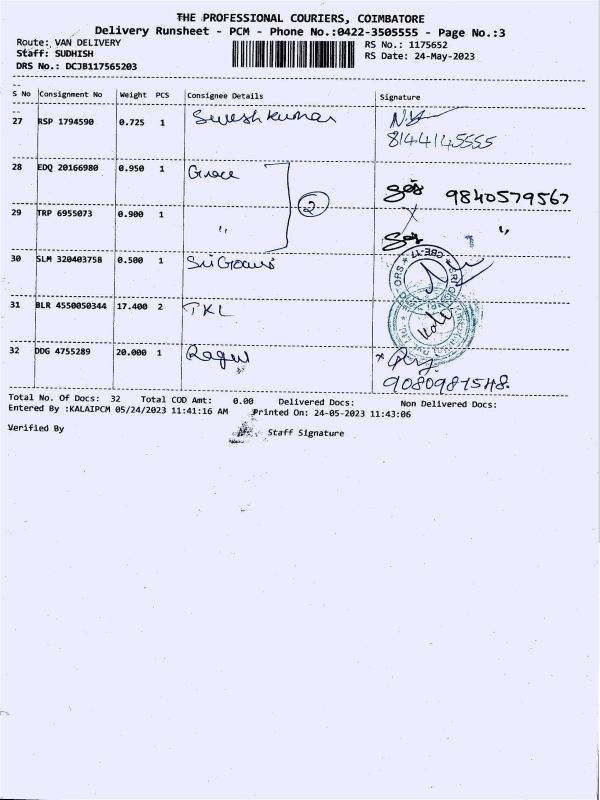 THE PROFESSIONAL COURIERS, COIMBATORE
Delivery Runsheet - PCM - Phone No.:0422-3505555 - Page No.:3
Route: VAN DELIVERY RS No.: 1175652
Staff: SUDHISH RS Date: 24-May-2023
DRS No.: DCJB117565203
S No Consignment No Weight PCS Consignee Details Signature
27 RSP 1794590 0.725 1 Suresh kumar
8144145555
28 EDQ 20166980 0.950 1 Grace 9840579567
2
29 TRP 6955073 0.900 1 "
30 SLM 320403758 0.500 1 Sri Gowri
31 BLR 4550050344 17.400 2 TKL
32 DDG 4755289 20.000 1 Ragul
9080981548.
Total No. Of Docs: 32 Total COD Amt: 0.00 Delivered Docs: Non Delivered Docs:
Entered By :KALAIPCM 05/24/2023 11:41:16 AM Printed On: 24-05-2023 11:43:06
Verified By Staff Signature